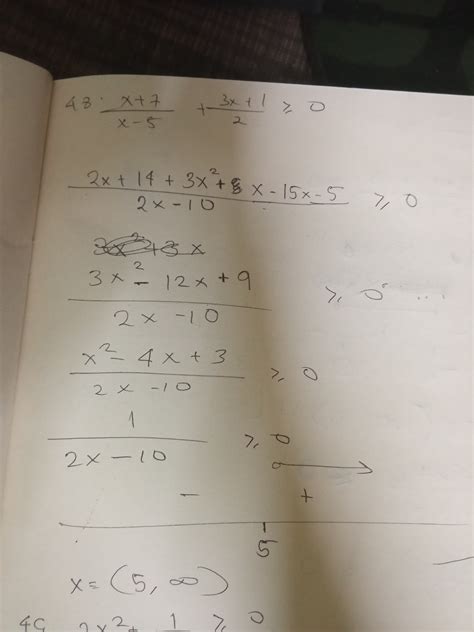 48. x+7/x-5 + 3x+1/2 ≥ 0
2x+14+3x²+ x-15x-5/2x-10 ≥ 0
3x²-12x+9/2x-10 ≥ 0 ...
x²-4x+3/2x-10 ≥ 0
1/2x-10 ≥ 0
- +
5
x = (5, ∞)
49 2x²+ 1 ≥ 0